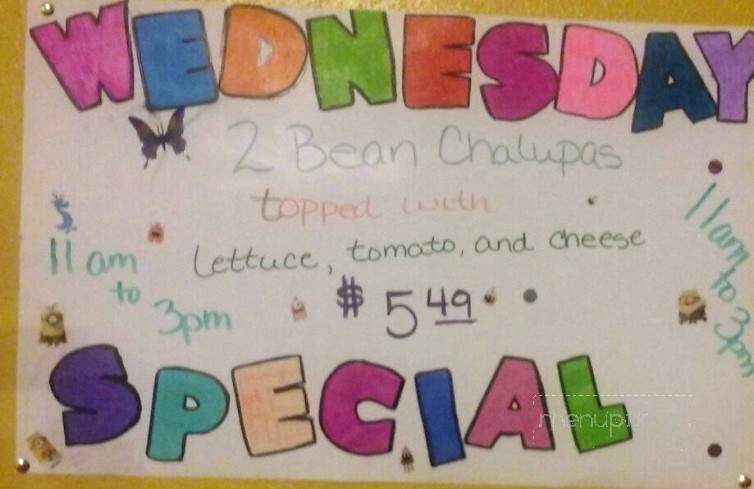 WEDNESDAY
2 Bean Chalupas
topped with
lettuce, tomato, and cheese
$ 5 49
11 am
to
3pm
11am to 3pm
SPECIAL
menupix